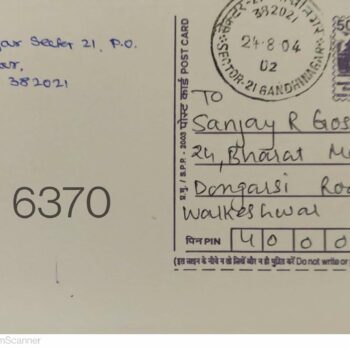 gar Sector 21, P.O.
ar,
382021
6370
प्र.मु. / S.P.P. - 2003 पोस्ट कार्ड POST CARD
382021
24-8 04
02
SECTOR-21 GANDHINAGAR
50
TO
Sanjay R Gos
24, Bharat M
Dongarsi Roa
Walkeshwar
पिन PIN 4 0 0 0
(इस लाइन के नीचे न तो लिखें और न ही मुद्रित करें Do not write or
mScanner